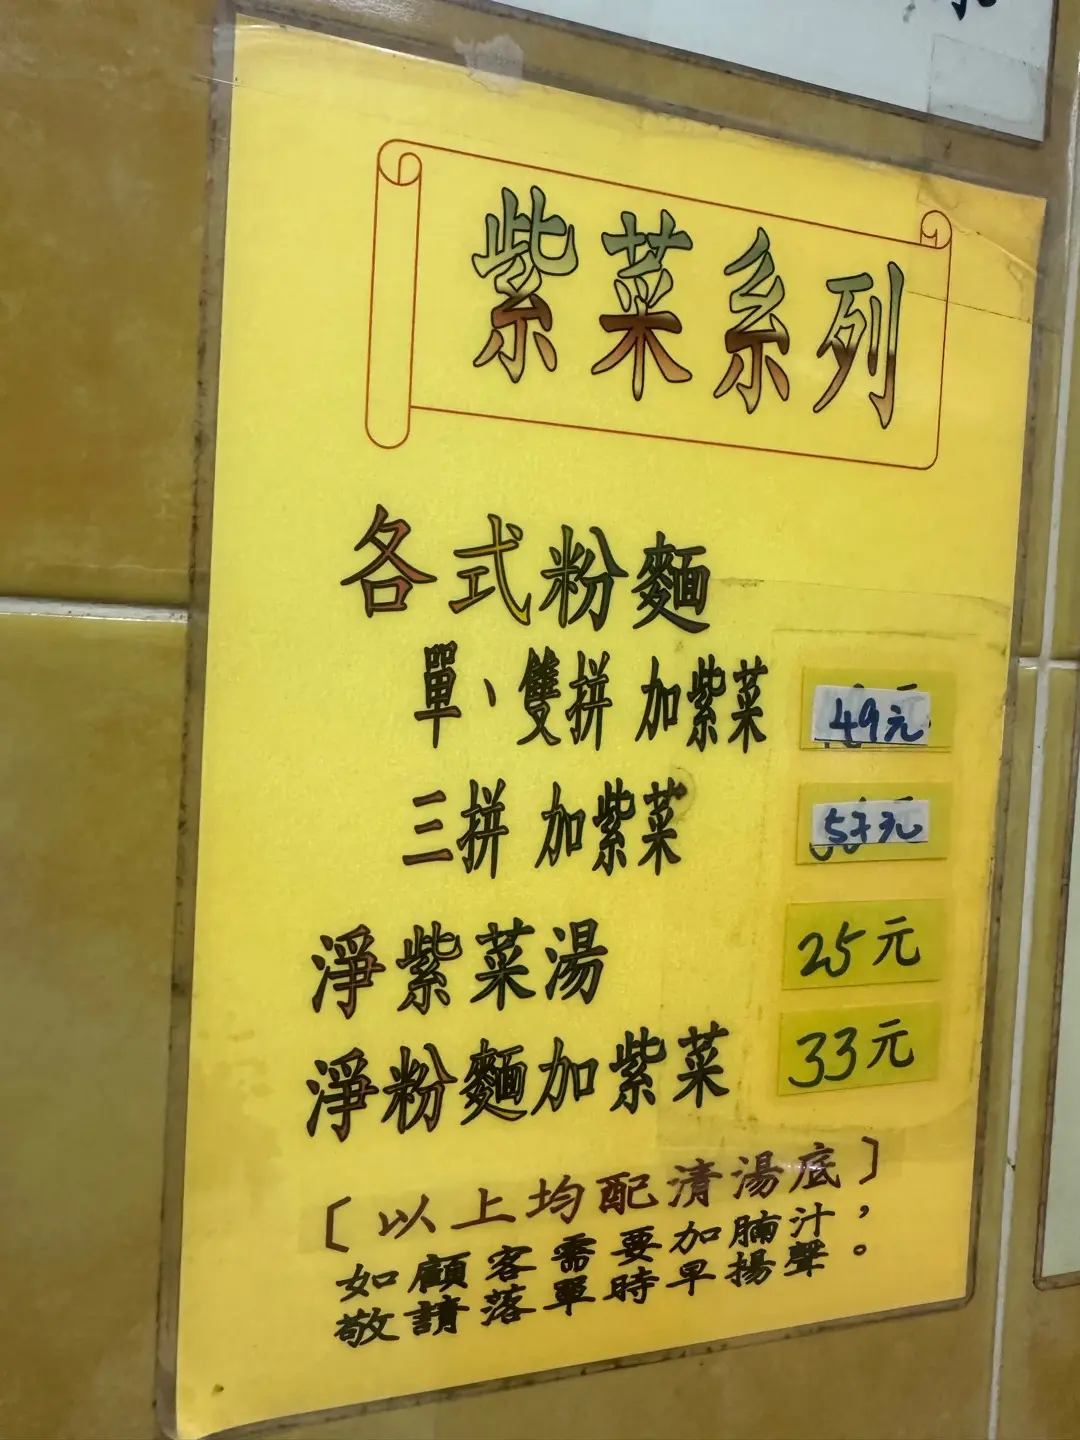 紫菜系列
各式粉麵
單、雙拼 加紫菜 49元
三拼 加紫菜 57元
淨紫菜湯 25元
淨粉麵加紫菜 33元
〔以上均配清湯底〕
如顧客需要加腩汁，
敬請落單時早揚聲。